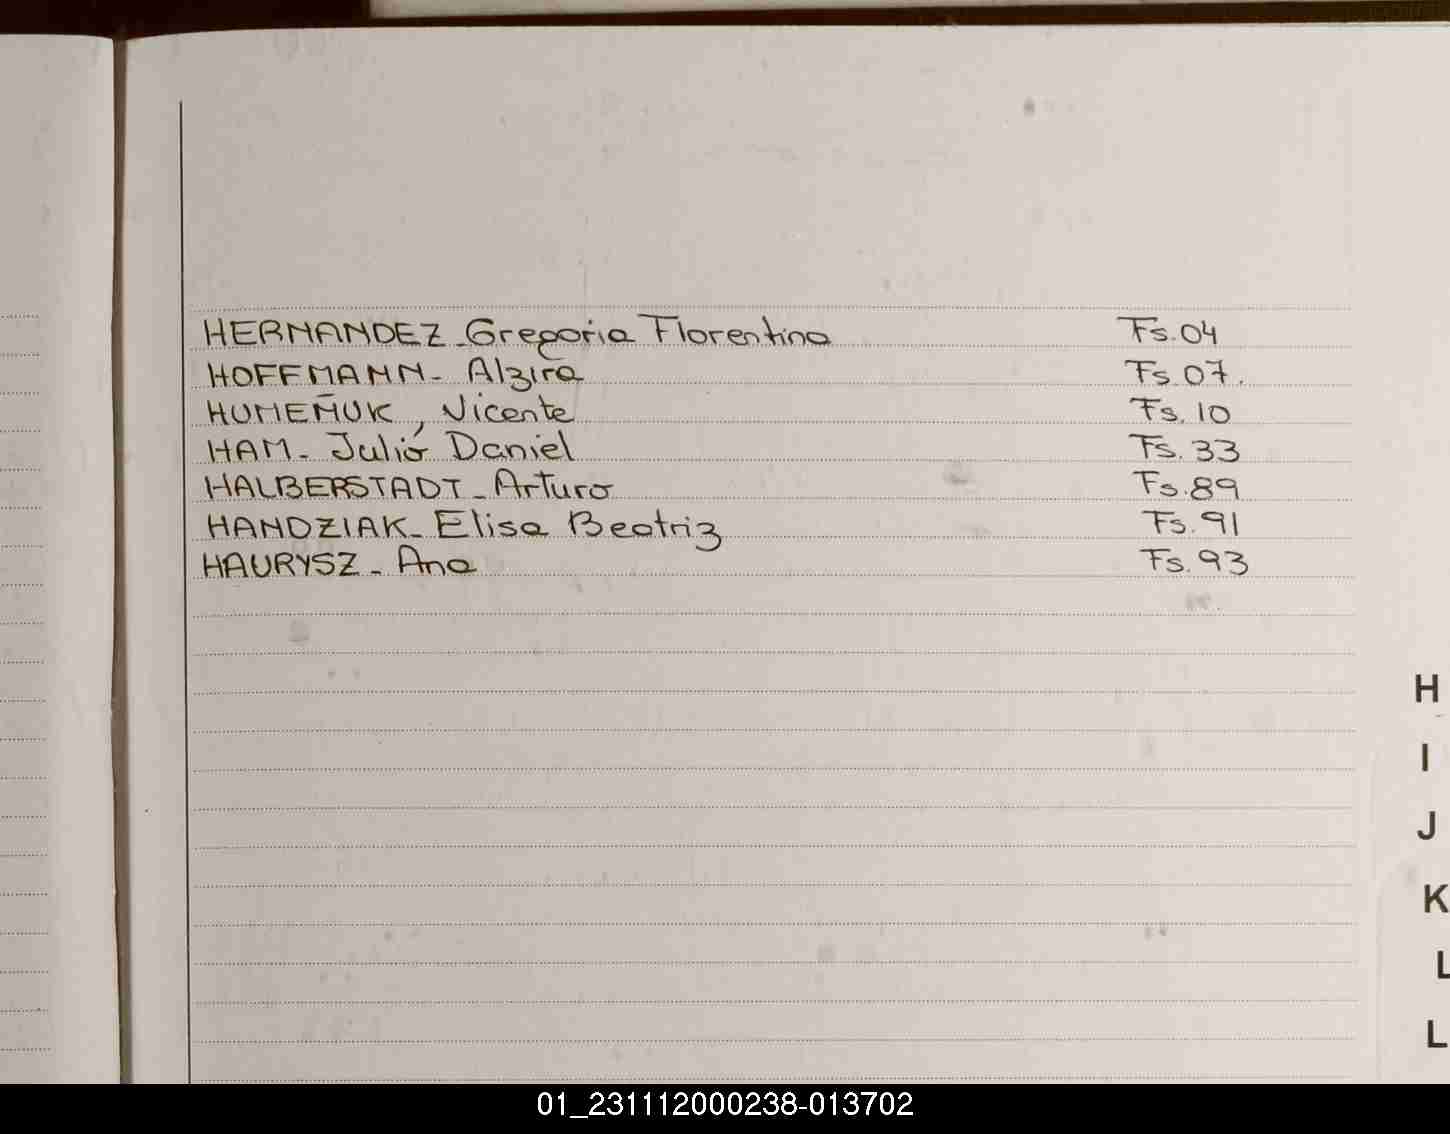 HERNANDEZ - Gregoria Florentina Fs.04
HOFFMANN - Alzira Fs.07.
HUMEÑUK, Vicente Fs.10
HAM - Julio Daniel Fs.33
HALBERSTADT - Arturo Fs.89
HANDZIAK - Elisa Beatriz Fs.91
HAURYSZ - Ana Fs.93
H
I
J
K
L
L
01_231112000238-013702